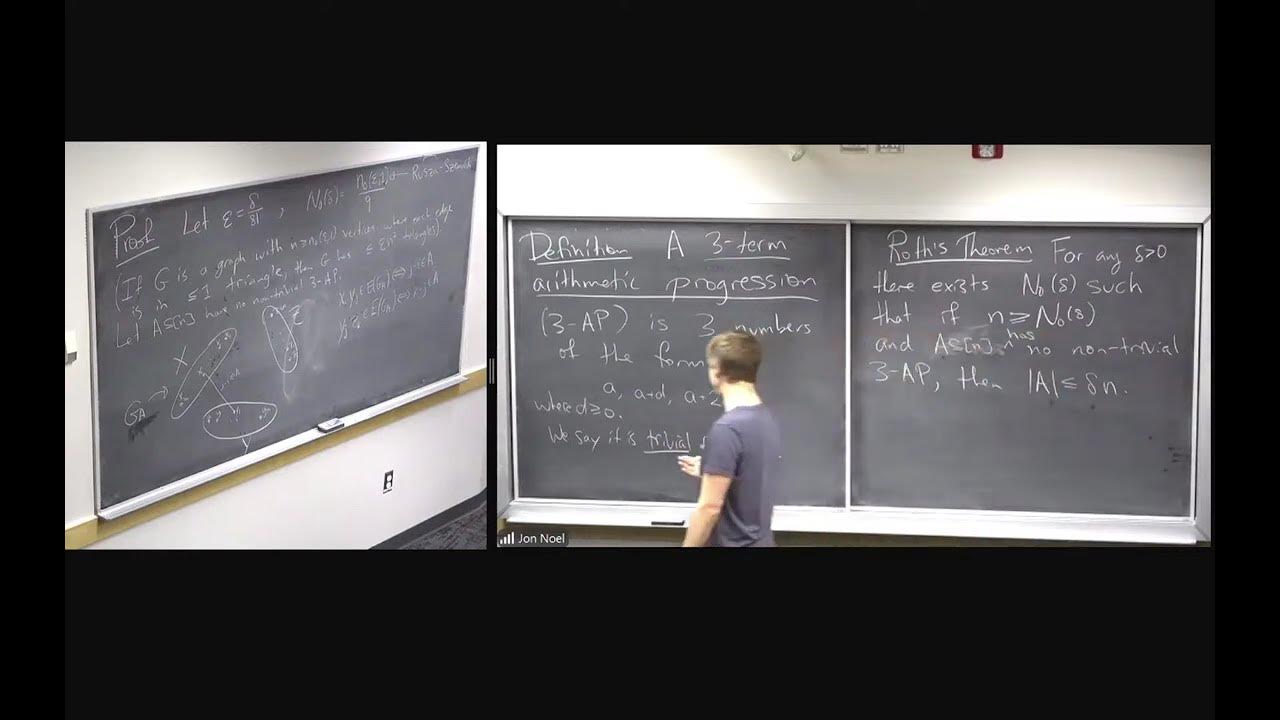 Proof Let ε = δ/81 , N₀(δ) = n₀(ε,1)/9 ← Rusza-Szemerédi
(If G is a graph with n ≥ n₀(ε,1) vertices where each edge
is in ≤ 1 triangle, then G has ≤ εn² triangles).
Let A⊆[n] have no nontrivial 3-AP.
X
Z
G_A →
Y
Definition A 3-term
arithmetic progression
(3-AP) is 3 numbers
of the form
a, a+d, a+2
where d≥0.
We say it is trivial
Roth's Theorem For any δ>0
there exists N₀(δ) such
that if n ≥ N₀(δ)
and A⊆[n] has no non-trivial
3-AP, then |A| ≤ δn.
Jon Noel